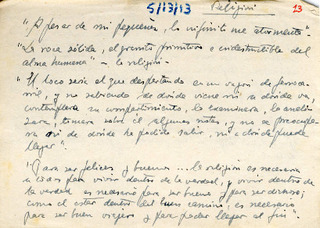 5/13/13
Religión
13
"A pesar de mi pequeñez, lo infinito me atormenta"
"La roca sólida, el granito primitivo e indestructible del
alma humana" — la religión —
"El loco sería el que despertando en un vagón de ferroca-
rril, y no sabiendo de dónde viene ni a dónde va,
contemplara su compartimiento, lo examinara, lo anali-
zara, tomara sobre él algunas notas, y no se preocupa-
ra ni de dónde ha podido salir, ni a dónde puede
llegar".
"Para ser felices y buenos ... la religión es necesaria
a todos para vivir dentro de la verdad, y vivir dentro de
la verdad es necesario para ser bueno y para ser dichoso;
como el estar dentro del buen camino, es necesario
para ser buen viajero y para poder llegar al fin".